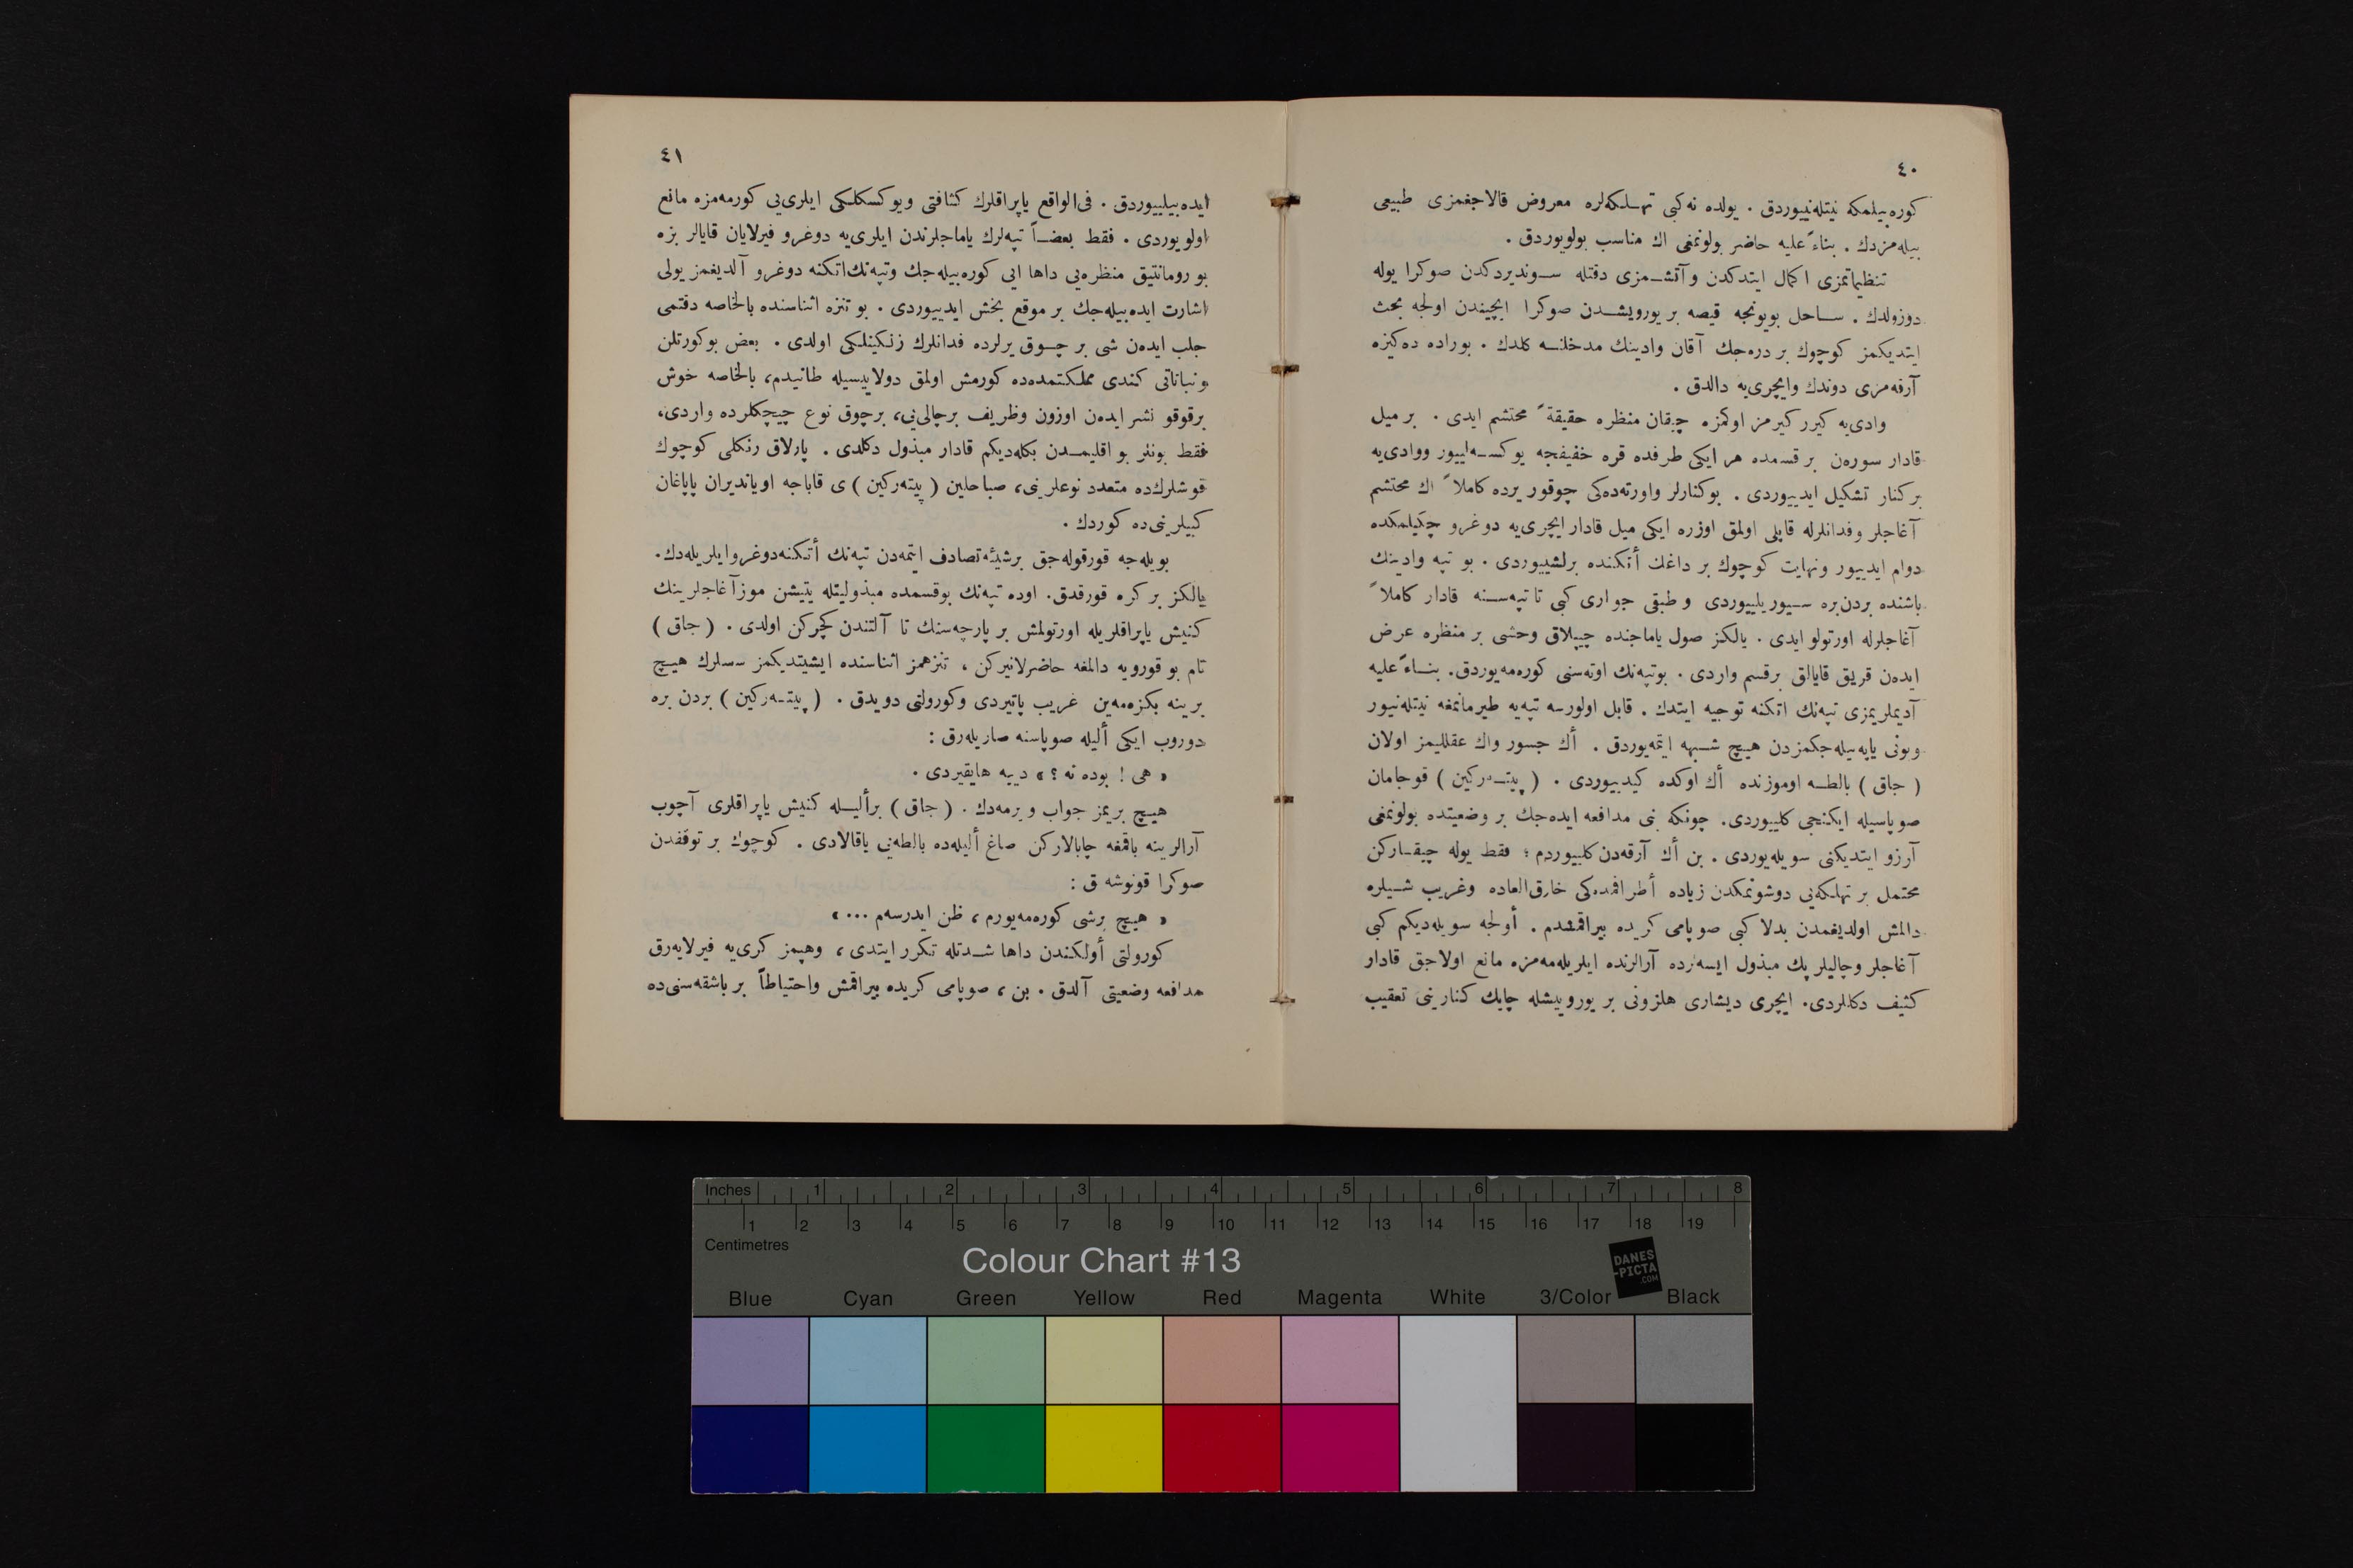 ٤٠
كوره‌بيلمكه نيتله‌نييوردق . يولده نه‌كبى تهلكه‌لره معروض قالاجغمزى طبيعى
بيله‌مزدك . بناءً عليه حاضر بولونمغى اك مناسب بولويوردق .
تنظيماتمزى اكمال ايتدكدن وآتشمزى دقتله سونديردكدن صوكرا يوله
دوزولدك . ساحل بويونجه قيصه بر يورويشدن صوكرا ايچيندن اولجه بحث
ايتديكمز كوچوك بر دره‌جك آقان وادينك مدخلنه كلدك . بوراده ده‌كيزه
آرقه‌مزى دوندك وايچرى‌يه دالدق .
وادى‌يه كيرر كيرمز اوكمزه چيقان منظره حقيقةً محتشم ايدى . بر ميل
قادار سوره‌ن بر قسمده هر ايكى طرفده قره خفيفجه يوكسه‌لييور ووادى‌يه
بر كنار تشكيل ايدييوردى . بوكنارلر واورته‌ده‌كى چوقور يرده كاملاً اك محتشم
آغاجلر وفدانلرله قاپلى اولمق اوزره ايكى ميل قادار ايچرى‌يه دوغرو چكيلمكده
دوام ايدييور ونهايت كوچوك بر داغك أتكنده برلشييوردى . بو تپه وادينك
باشنده بردن‌بره سيوريلييوردى و طبقى جوارى كبى تا تپه‌سنه قادار كاملاً
آغاجلرله اورتولو ايدى . يالكز صول ياماجنده چيپلاق وحشى بر منظره عرض
ايده‌ن قريق قايالق برقسم واردى . بوتپه‌نك اوته‌سنى كوره‌مه‌يوردق . بناءً عليه
آديملريمزى تپه‌نك اتكنه توجيه ايتدك . قابل اولورسه تپه‌يه طيرمانمغه نيتله‌نيور
وبونى ياپه‌بيله‌جكمزدن هيچ شبهه ايتمه‌يوردق . أك جسور واك عقلليمز اولان
( جاق ) بالطه اوموزنده أك اوكده كيدييوردى . ( پيته‌ركين ) قوجامان
صوپاسيله ايكنجى كلييوردى . چونكه بنى مدافعه ايده‌جك بر وضعيتده بولونمغى
آرزو ايتديكنى سويله‌يوردى . بن أك آرقه‌دن كلييوردم ؛ فقط يوله چيقاركن
محتمل بر تهلكه‌يى دوشونمكدن زياده أطرافمده‌كى خارق‌العاده وغريب شيلره
دالمش اولديغمدن بدلا كبى صوپامى كريده بيراقمشدم . أولجه سويله‌ديكم كبى
آغاجلر وچاليلر پك مبذول ايسه‌لرده آرالرنده ايلريله‌مه‌مزه مانع اولاجق قادار
كثيف دكللردى . ايچرى ديشارى هلزونى بر يورويشله چايك كنارينى تعقيب
٤١
ايده‌بيلييوردق . فى‌الواقع ياپراقلرك كثافتى ويوكسكلكى ايلرى‌يى كورمه‌مزه مانع
اولويوردى . فقط بعضاً تپه‌لرك ياماجلرندن ايلرى‌يه دوغرو فيرلايان قايالر بزه
بو رومانتيق منظره‌يى داها ايى كوره‌بيله‌جك وتپه‌نك اتكنه دوغرو آلديغمز يولى
اشارت ايده‌بيله‌جك بر موقع بخش ايدييوردى . بو تنزه اثناسنده بالخاصه دقتمى
جلب ايده‌ن شى بر چوق يرلرده فدانلرك زنكينلكى اولدى . بعض بوكورتلن
و نباتاتى كندى مملكتمده‌ده كورمش اولمق دولاييسيله طانيدم ، بالخاصه خوش
برقوقو نشر ايده‌ن اوزون وظريف برچالى‌يى ، برچوق نوع چيچكلرده واردى ،
فقط بونلر بو اقليمدن بكله‌ديكم قادار مبذول دكلدى . پارلاق رنكلى كوچوك
قوشلرك‌ده متعدد نوعلرينى ، صباحلين ( پيته‌ركين ) ى قاباجه اوياتديران پاپاغان
كبيلرينى‌ده كوردك .
بويله‌جه قورقوله‌جق برشيئه تصادف ايتمه‌دن تپه‌نك أتكنه دوغرو ايلريله‌دك .
يالكز بر كره قورقدق . اوده تپه‌نك بوقسمده مبذوليتله يتيشن موز آغاجلرينك
كنيش ياپراقلريله اورتولمش بر پارچه‌سنك تا آلتندن كچركن اولدى . ( جاق )
تام بو قورويه دالمغه حاضرلانيركن ، تنزهمز اثناسنده ايشيتديكمز سسلرك هيچ
برينه بكزه‌مه‌ين غريب پاتيردى وكورولتى دويدق . ( پيته‌ركين ) بردن بره
دوروب ايكى أليله صوپاسنه صاريله‌رق :
« هى ! بوده نه ؟ » دييه هايقيردى .
هيچ بريمز جواب ويرمه‌دك . ( جاق ) برأليله كنيش ياپراقلرى آچوب
آرالرينه باقمغه چابالاركن صاغ أليله‌ده بالطه‌يى ياقالادى . كوچوك بر توقفدن
صوكرا قونوشه ق :
« هيچ برشى كوره‌مه‌يورم ، ظن ايدرسه‌م ... »
كورولتى أولكندن داها شدتله تكرر ايتدى ، وهپمز كرى‌يه فيرلايه‌رق
مدافعه وضعيتى آلدق . بن ، صوپامى كريده بيراقمش واحتياطاً بر باشقه‌سنى‌ده
Inches 1 2 3 4 5 6 7 8
1 2 3 4 5 6 7 8 9 10 11 12 13 14 15 16 17 18 19
Centimetres
Colour Chart #13
DANES
-PICTA
.COM
Blue Cyan Green Yellow Red Magenta White 3/Color Black